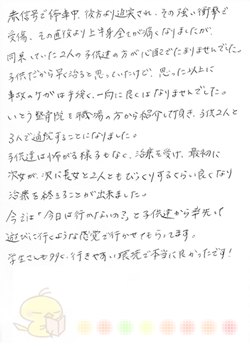 赤信号で停車中、後方より追突され、その強い衝撃で
受傷、その直後より上半身全てが痛くなりましたが、
同乗していた2人の子供達の方が心配でたまりませんでした。
子供だから早く治ると思っていたけど、思った以上に
事故のケガは手強く、一向に良くはなりませんでした。
いとう整骨院を職場の方から紹介して頂き、子供2人と
3人で通院することになりました。
子供達は怖がる様子もなく、治療を受け、最初に
次女が、次に長女と2人ともびっくりするくらい良くなり
治療を終えることが出来ました。
今では「今日は行かないの?」と子供達から率先して
遊びに行くような感覚で行かせてもらってます。
学生さんも多く、行きやすい環境で本当に良かったです!